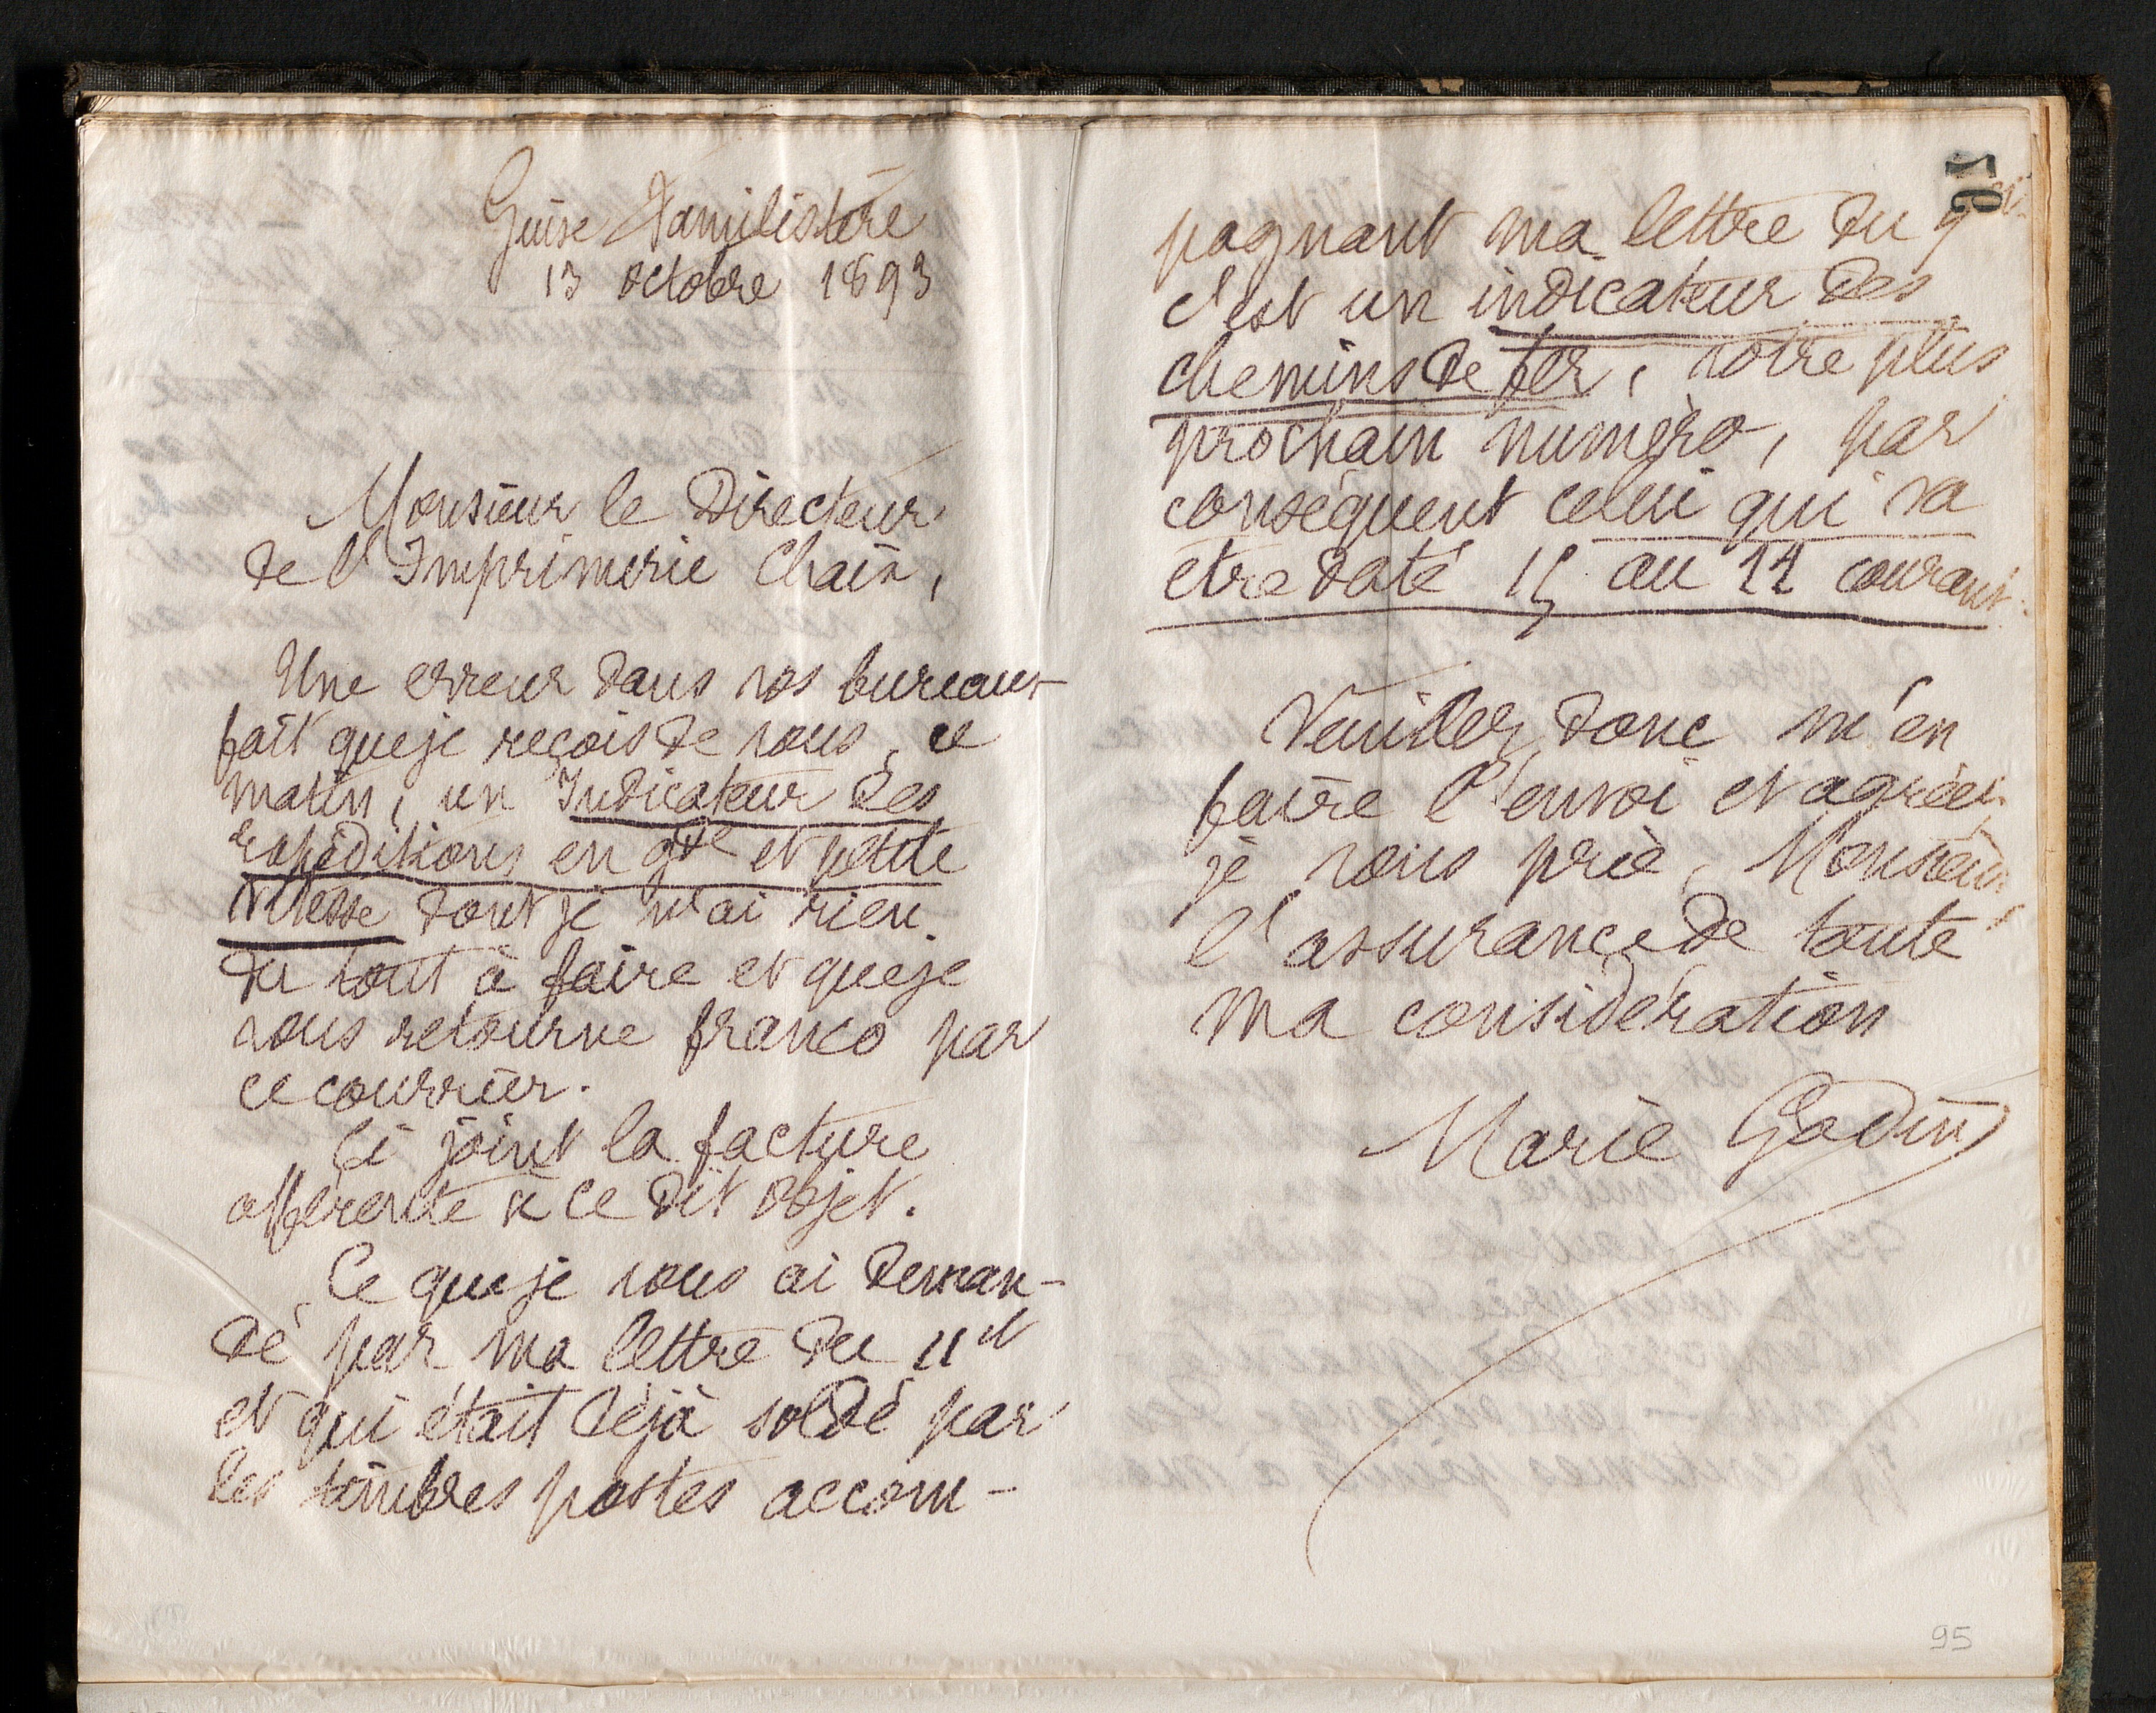 Guise Familistère
13 octobre 1893
Monsieur le Directeur
de l'Imprimerie Chaix,
Une erreur dans vos bureaux
fait que je reçois de vous, ce
matin, un Indicateur des
expéditions en gde et petite
vitesse dont je n'ai rien
du tout à faire et que je
vous retourne franco par
ce courrier.
Ci joint la facture
afférente à ce dit objet.
Ce que je vous ai deman-
dé par ma lettre du 11 ct
et qui était déjà soldé par
les timbres postes accom-
95
pagnant ma lettre du 9 ct
c'est un indicateur des
chemins de fer, votre plus
prochain numéro, par
conséquent celui qui va
etre daté 15 au 22 courant.
Veuillez donc m'en
faire l'envoi et agréer,
je vous prie, Monsieur,
l'assurance de toute
ma considération
Marie Godin
95